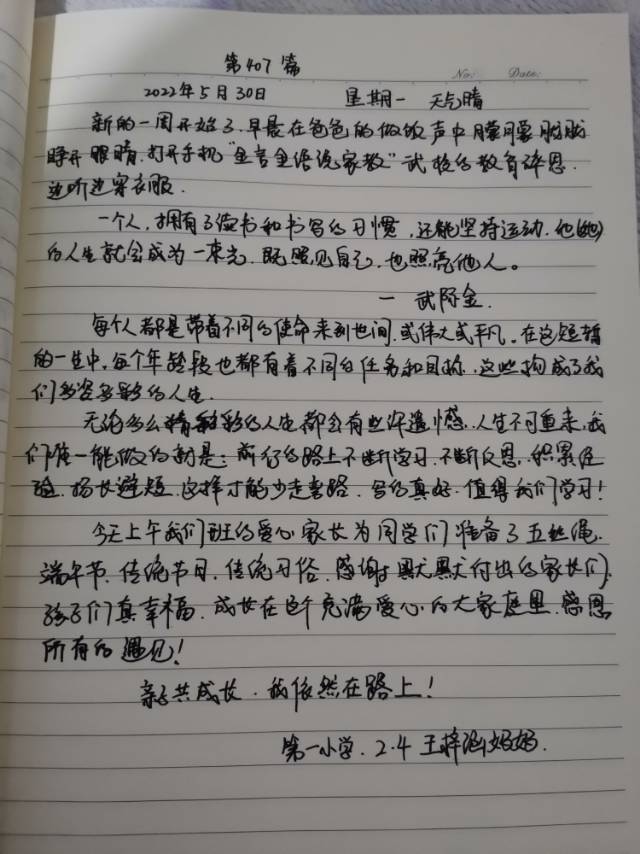 第407篇
No: Date:
2022年5月30日 星期一 天气晴
新的一周开始了,早晨在爸爸的做饭声中朦朦胧胧
睁开眼睛,打开手机"金言金语说家教"武校的教育碎思,
边听边穿衣服。
一个人,拥有了读书和书写的习惯,还能坚持运动,他(她)
的人生就会成为一束光,既照见自己,也照亮他人。
一武际金
每个人都是带着不同的使命来到世间,或伟大或平凡。在这短暂
的一生中,每个年龄段也都有着不同的任务和目标,这些构成了我
们多姿多彩的人生。
无论多么精彩的人生都会有些许遗憾,人生不可重来,我
们唯一能做的就是:前行的路上不断学习,不断反思,积累经
验,扬长避短,这样才能少走弯路。写的真好,值得我们学习!
今天上午我们班的爱心家长为同学们准备了五丝绳,
端午节,传统节日,传统习俗,感谢默默付出的家长们,
孩子们真幸福,成长在这个充满爱心的大家庭里,感恩
所有的遇见!
亲子共成长,我依然在路上!
第一小学,2.4 王梓涵妈妈.